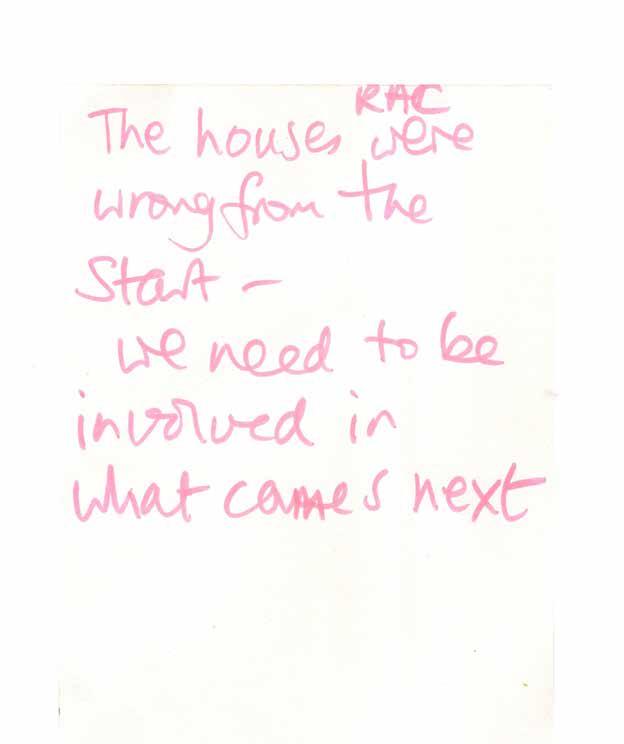 RAC
The houses were
wrong from the
Start -
we need to be
involved in
what comes next